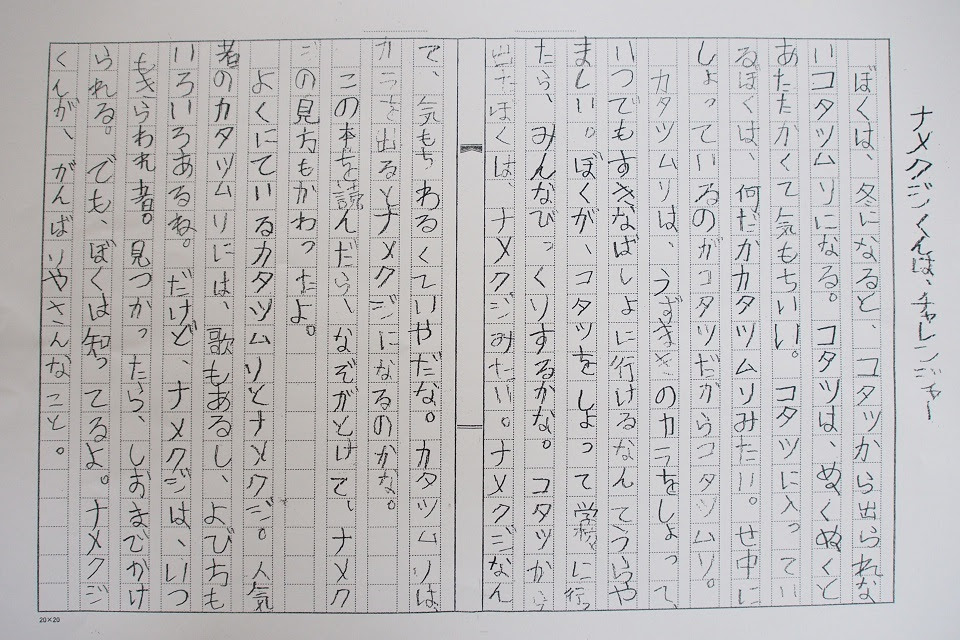 ナメクジくんは、チャレンジャー
ぼくは、冬になると、コタツから出られな
いコタツムリになる。コタツは、ぬくぬくと
あたたかくて気もちいい。コタツに入ってい
るぼくは、何だかカタツムリみたい。せ中に
しょっているのがコタツだからコタツムリ。
カタツムリは、うずまきのカラをしょって、
いつでもすきなばしょに行けるなんてうらや
ましい。ぼくが、コタツをしょって学校に行っ
たら、みんなびっくりするかな。コタツから
出たぼくは、ナメクジみたい。ナメクジなん
て、気もちわるくていやだな。カタツムリは、
カラを出るとナメクジになるのかな。
この本を読んだら、なぞがとけて、ナメク
ジの見方もかわったよ。
よくにているカタツムリとナメクジ。人気
者のカタツムリには、歌もあるし、よび名も
いろいろあるね。だけど、ナメクジは、いつ
もきらわれ者。見つかったら、しおまでかけ
られる。でも、ぼくは知ってるよ。ナメクジ
くんが、がんばりやさんなこと。
20×20